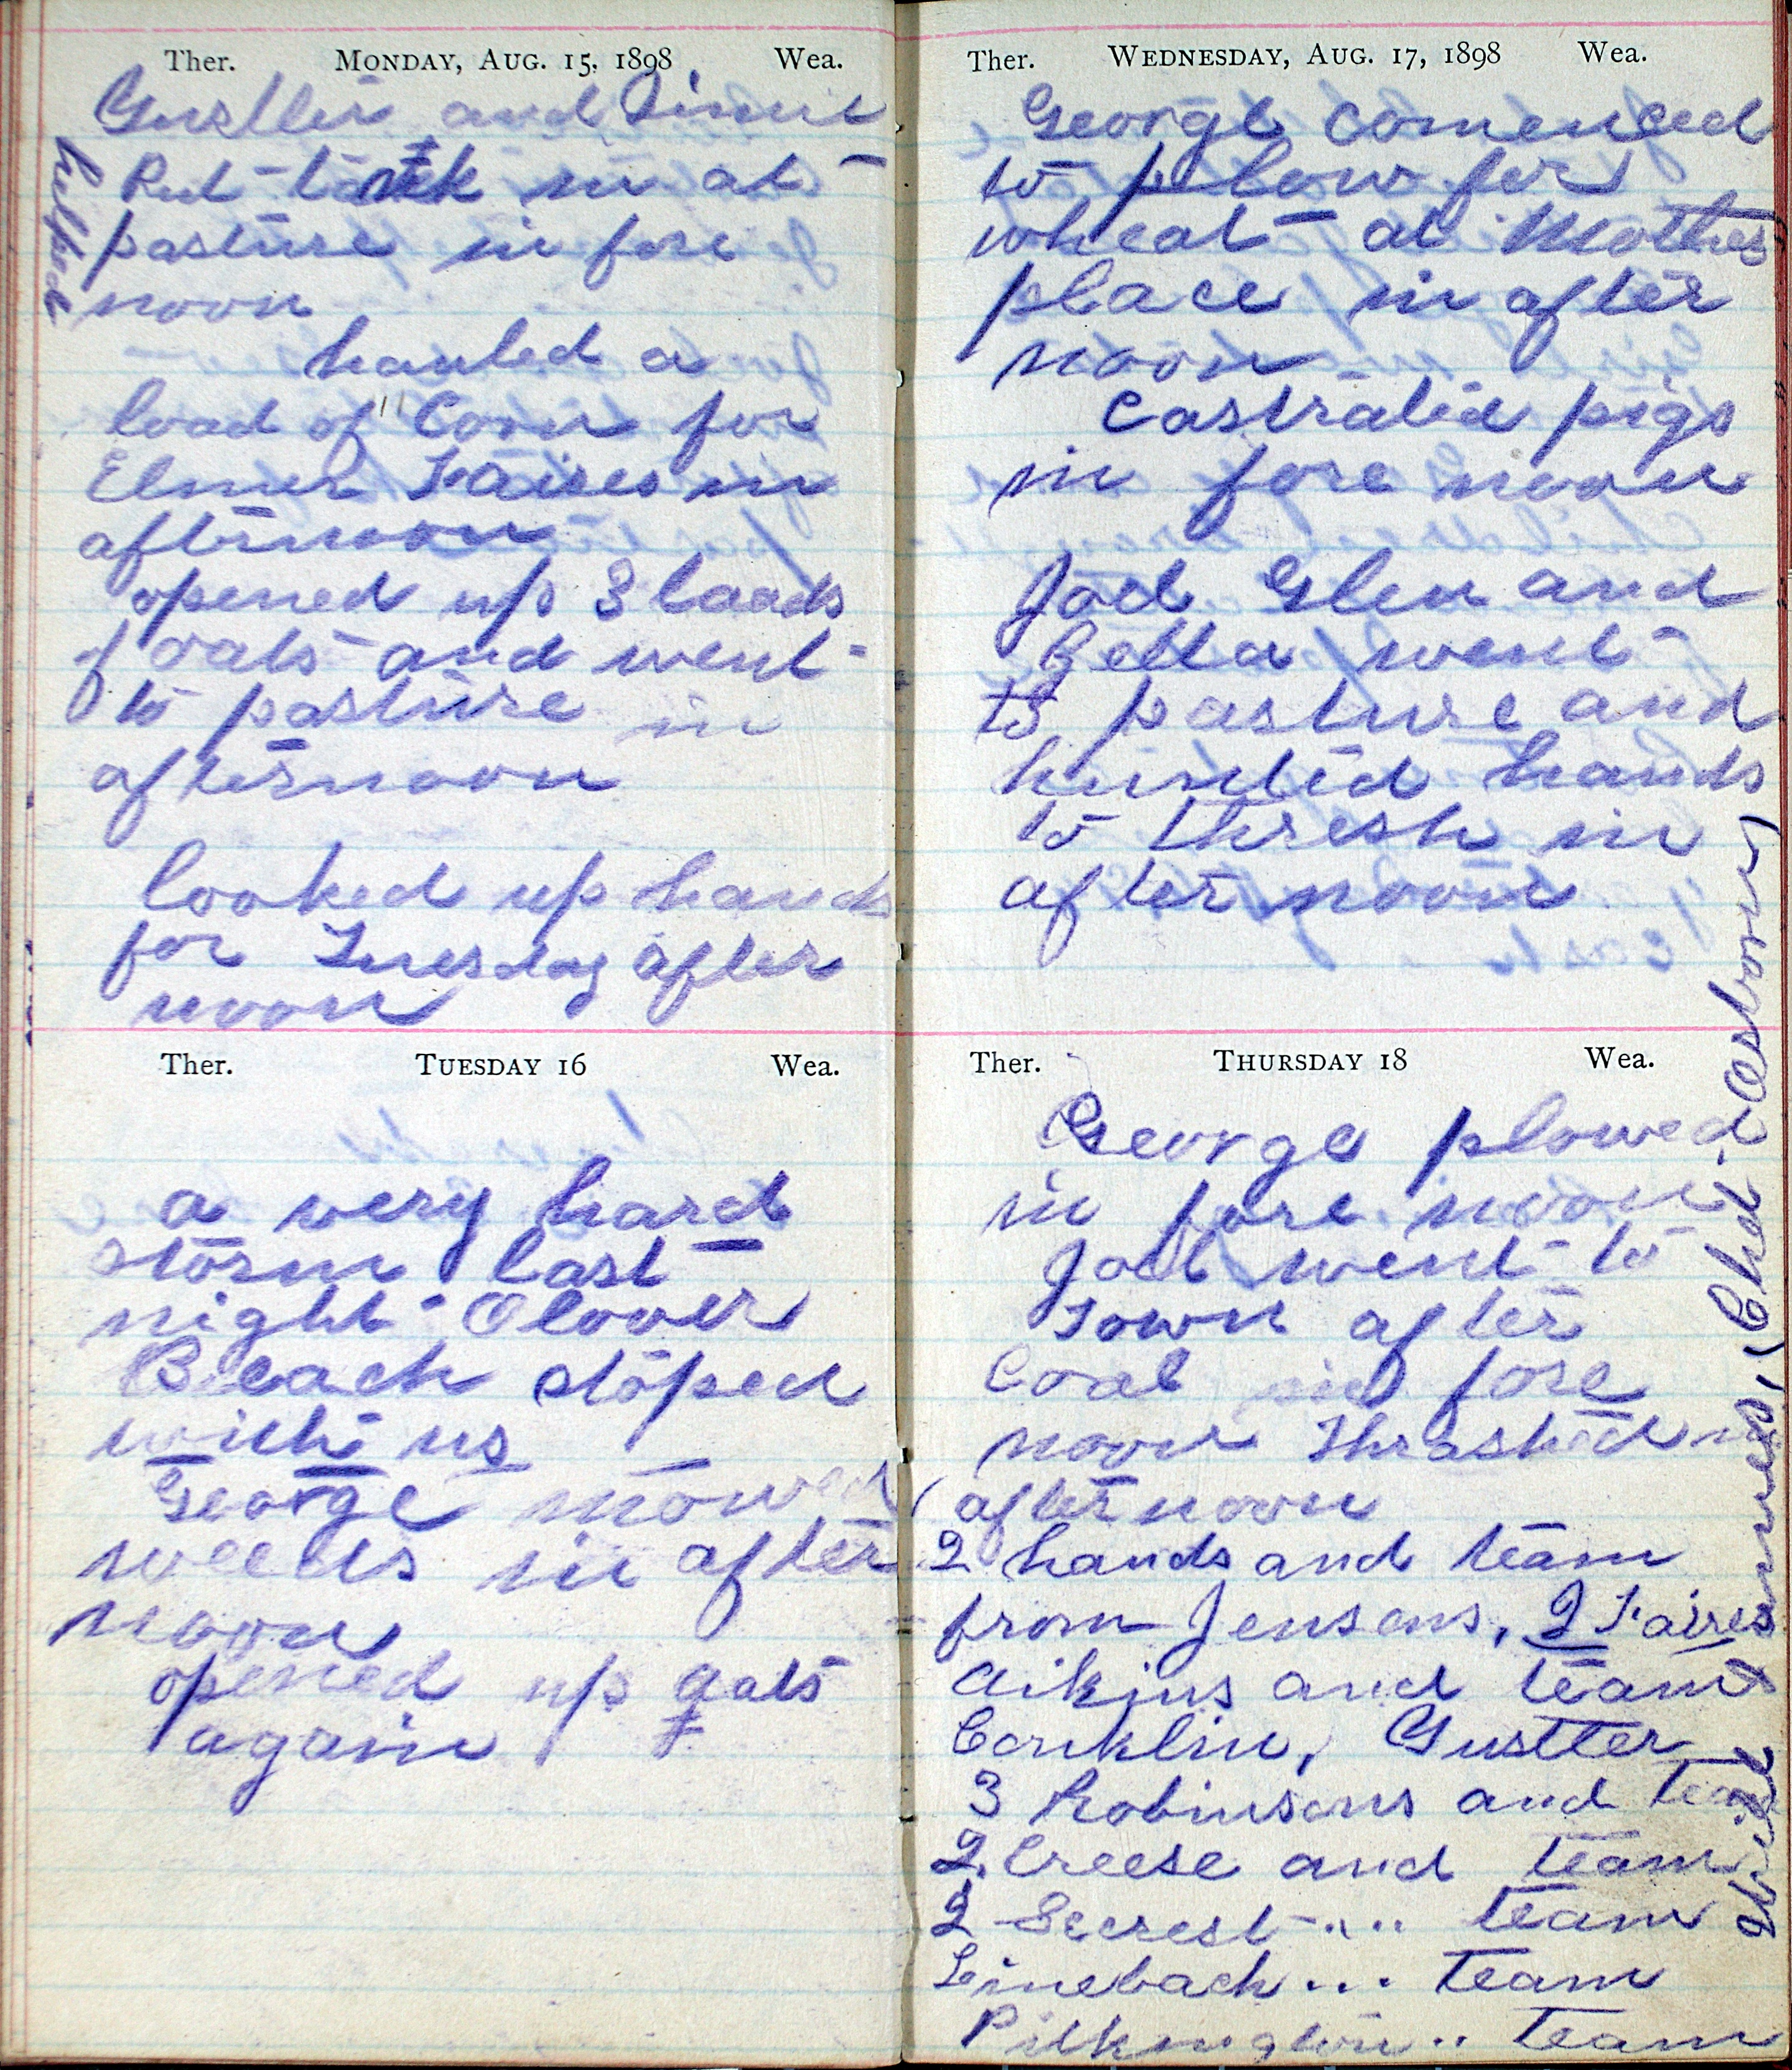 Ther. MONDAY, AUG. 15, 1898 Wea.
Gustler and
helped
Put tank in at
pasture in fore
noon
hauled a
load of Corn for
Elmer Faires in
afternoon
opened up 3 loads
of oats and went
to pasture in
afternoon
looked up hands
for Tuesday after
noon
Ther. TUESDAY 16 Wea.
a very hard
storm last
night Olover
Beach stoped
with us
George mowed
weeds in after
noon
opened up oats
again
Ther. WEDNESDAY, AUG. 17, 1898 Wea.
George comenced
to plow for
wheat at Mothers
place in after
noon
Castrated pigs
in fore noon
Joel Glen and
Zella went
to pasture and
hunted hands
to thresh in
after noon
Ther. THURSDAY 18 Wea.
George plowed
in fore noon
Joel went to
Town after
Coal in fore
noon Thrashed in
after noon
2 hands and team
from Jensens, 2 Faires
Aikins and team
Conklin, Gustter
3 Robinsons and team
2 Creese and team
2 Secrest .... team
Lineback ... team
Pilkington .. team
(Chet Osborn)